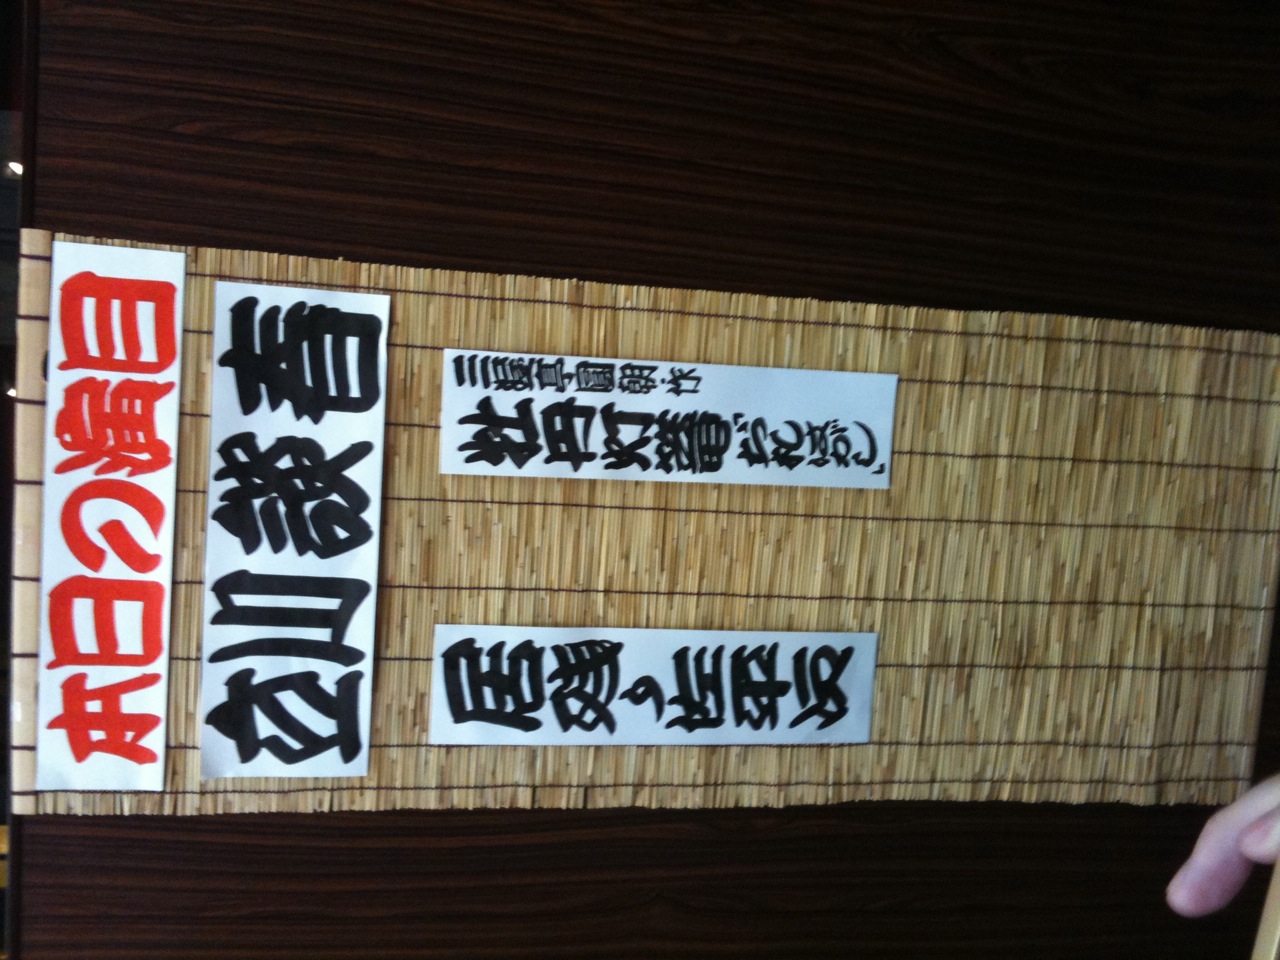 本日の演目
立川談春
三遊亭圓朝・作
牡丹灯篭「お札はがし」
居残り佐平次